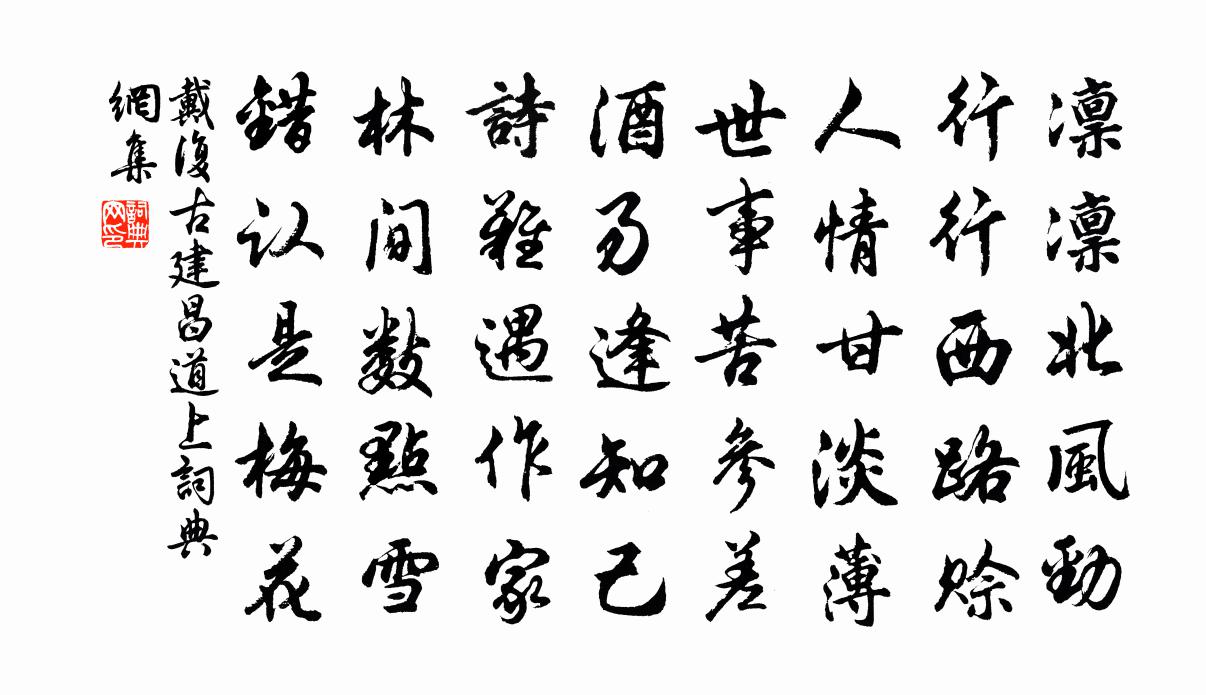 凛凛北風勁
行行西路賒
人情甘淡薄
世事苦參差
酒易逢知己
詩難遇作家
林間數點雪
錯認是梅花
戴復古建昌道上詞典
網集
詞典
网印